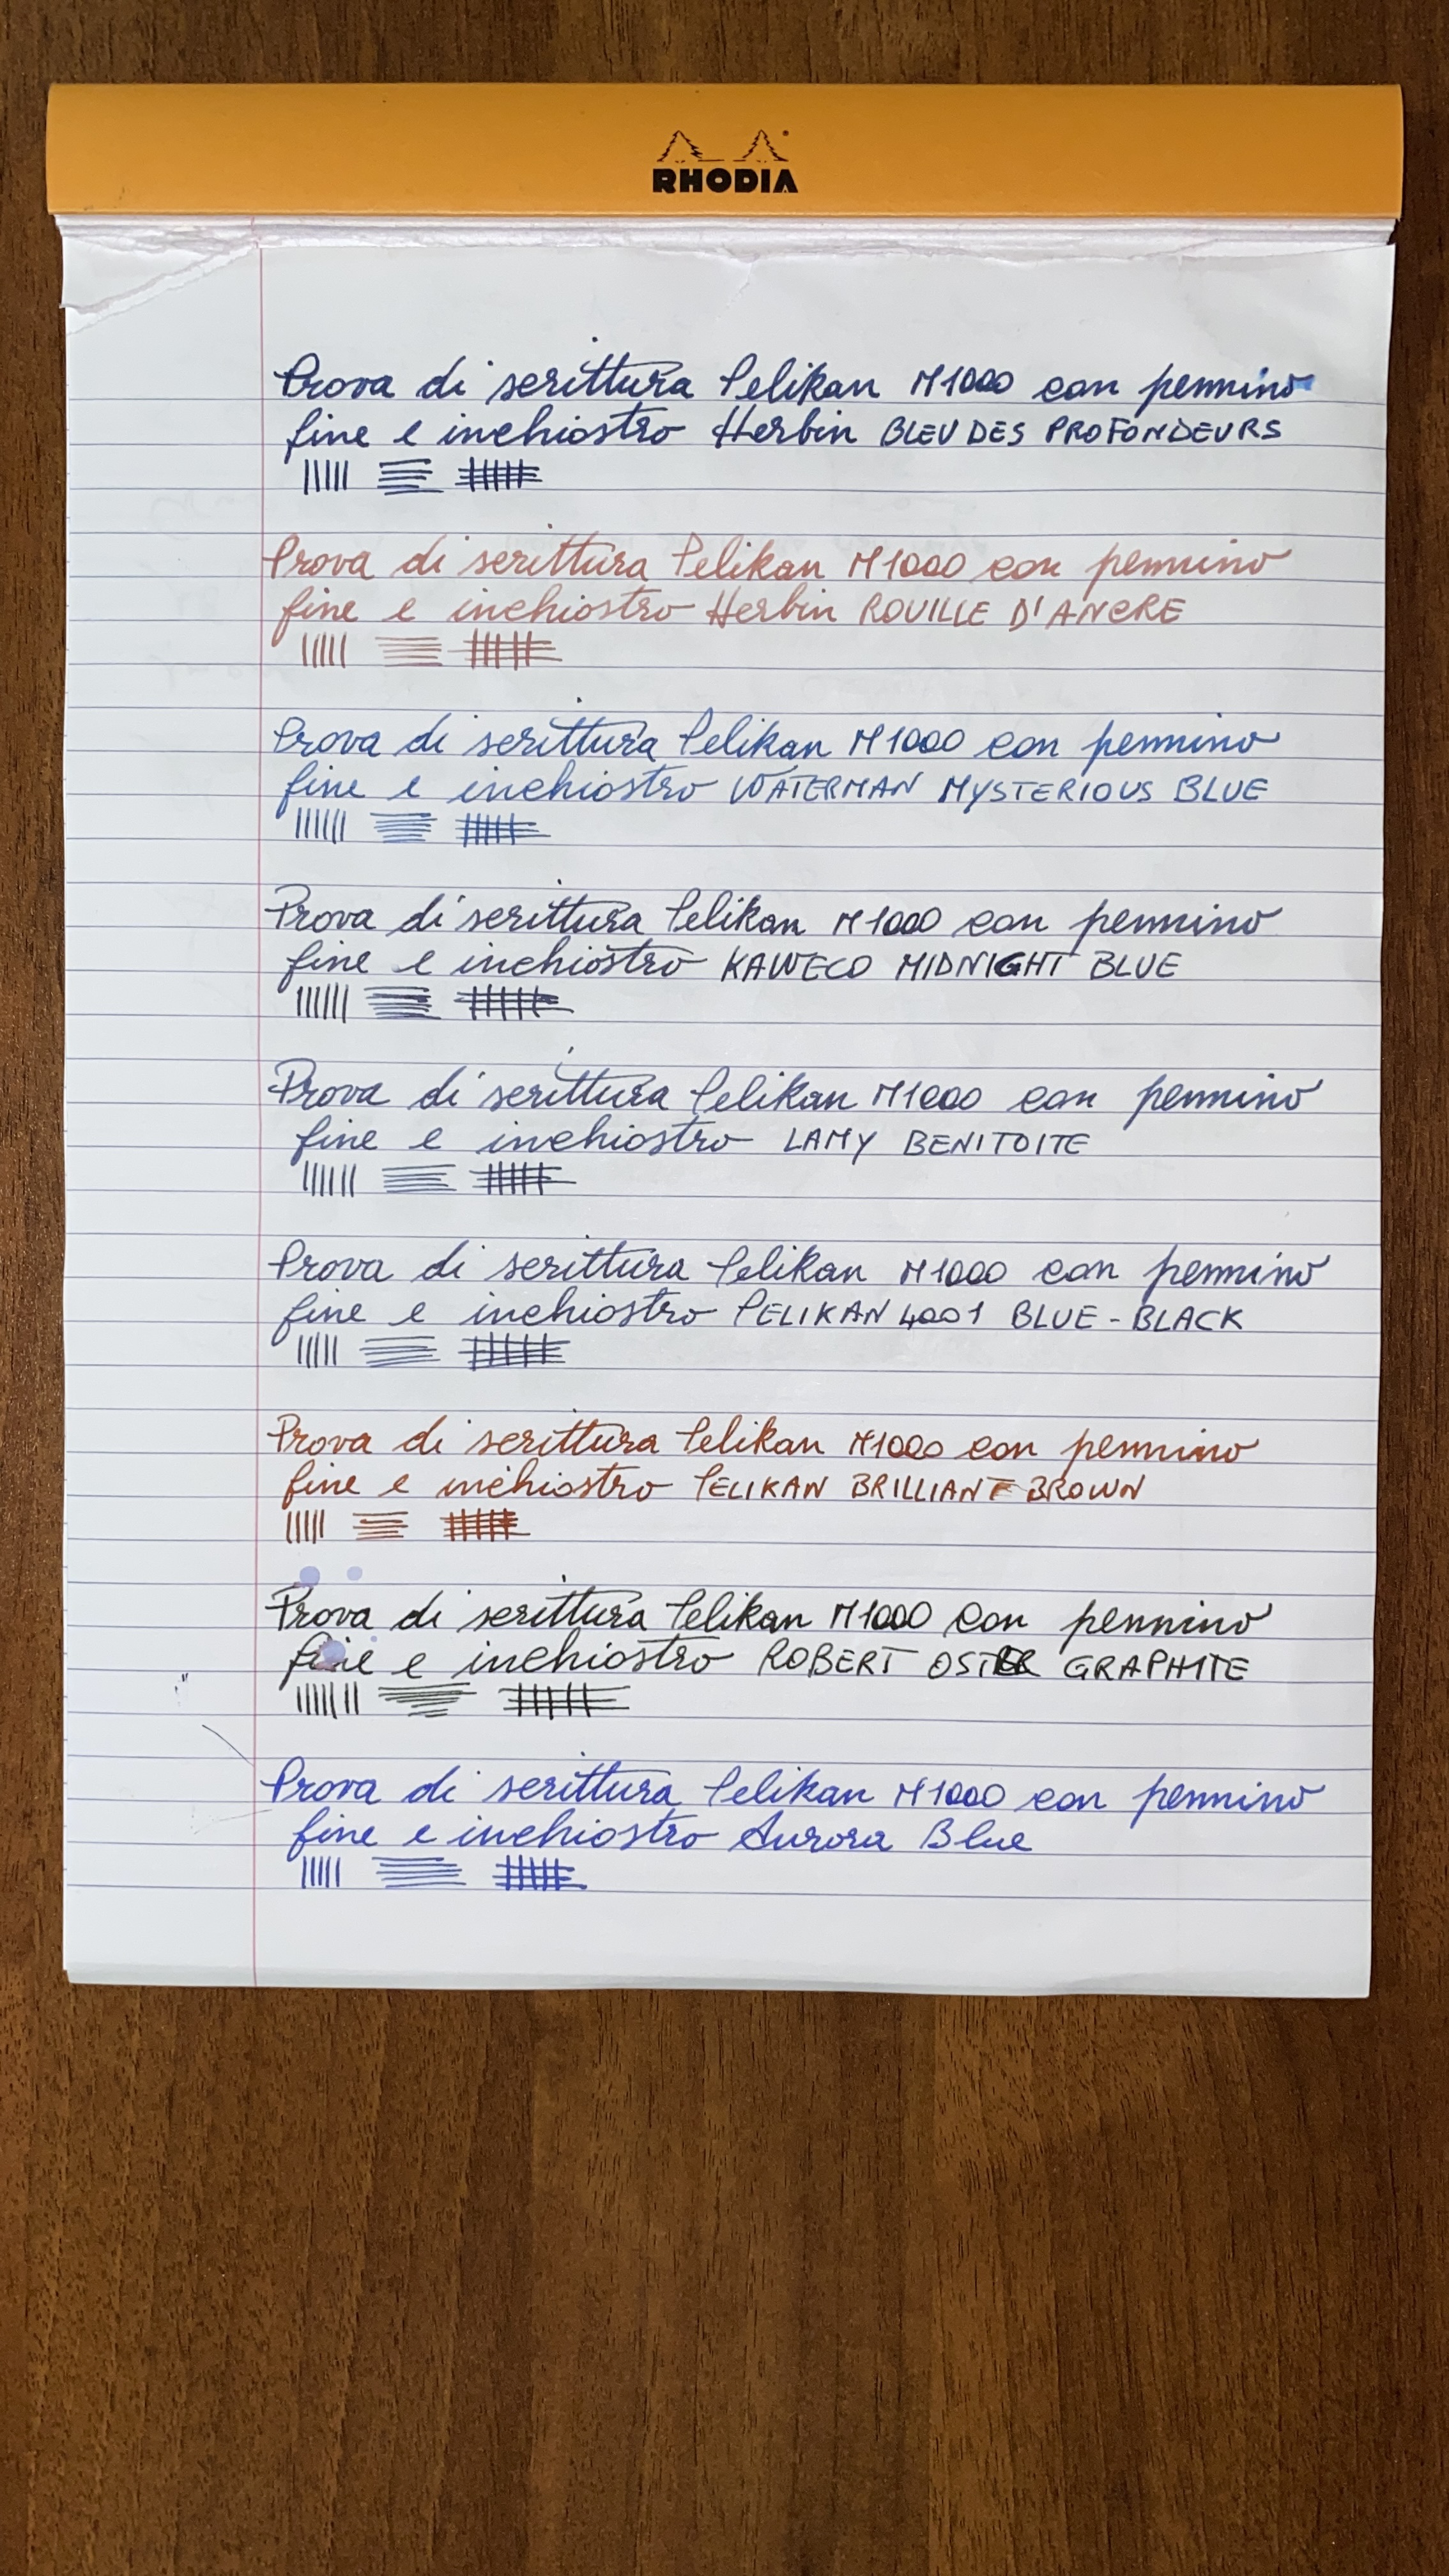 RHODIA
Prova di scrittura Pelikan M1000 con pennino
fine e inchiostro Herbin BLEU DES PROFONDEURS
Prova di scrittura Pelikan M1000 con pennino
fine e inchiostro Herbin ROUILLE D'ANCRE
Prova di scrittura Pelikan M1000 con pennino
fine e inchiostro WATERMAN MYSTERIOUS BLUE
Prova di scrittura Pelikan M1000 con pennino
fine e inchiostro KAWECO MIDNIGHT BLUE
Prova di scrittura Pelikan M1000 con pennino
fine e inchiostro LAMY BENITOITE
Prova di scrittura Pelikan M1000 con pennino
fine e inchiostro PELIKAN 4001 BLUE-BLACK
Prova di scrittura Pelikan M1000 con pennino
fine e inchiostro PELIKAN BRILLIANT BROWN
Prova di scrittura Pelikan M1000 con pennino
fine e inchiostro ROBERT OSTER GRAPHITE
Prova di scrittura Pelikan M1000 con pennino
fine e inchiostro Aurora Blue